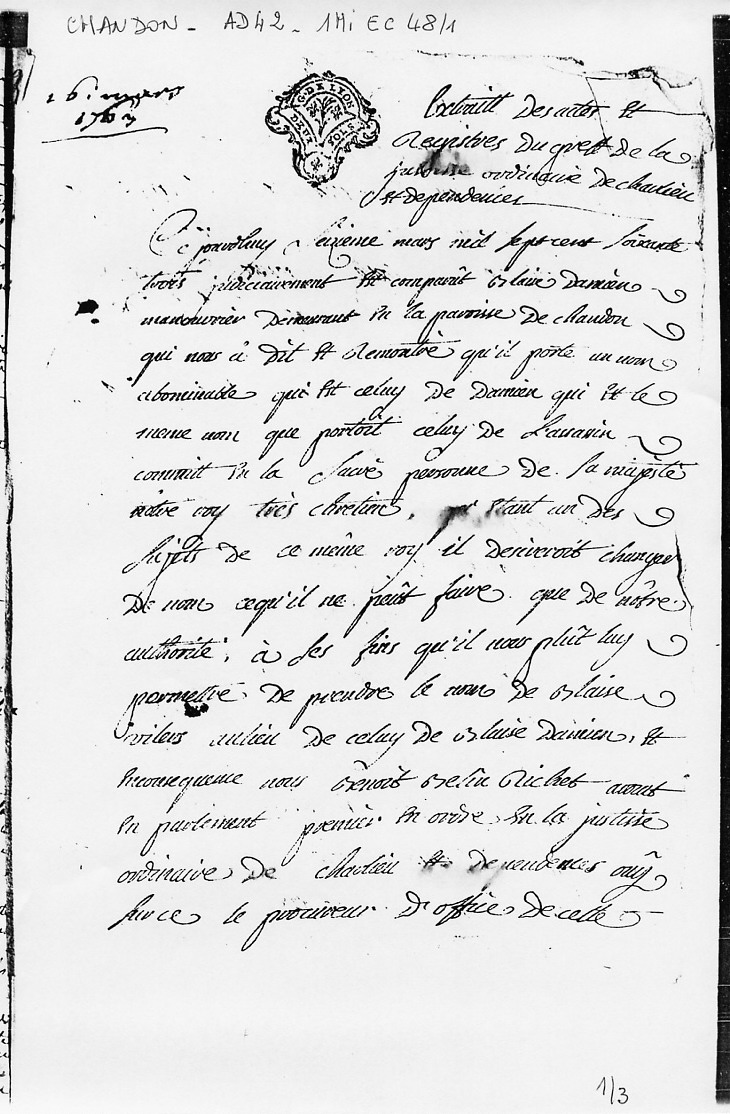 CHANDON - AD42 - 1Mi EC 48/1
16 mars
1763
G. DE LYON
DEUX SOLS
Extraitt Des actes Et
Registres Du greff De la
justisse ordinaire De charlieu
Et dependences
Ce jourdhuy Seizieme mars mil sept cent soixante
trois judiciairement Est comparût Blaise Damien
manouvrier Demeurant En la paroisse De chandon
qui nous à Dit Et Remontré qu'il porte un nom
abominable qui Est celuy De Damien qui Est le
meme nom que portoit celuy De L'assassin
committ En la Sacré personne De Sa majesté
nôtre roy très chretien, Etant un Des
Sujets De ce même roy il desireroit changer
De nom cequ'il ne peût faire que De nôtre
authorité, à Ses fins qu'il nous plût luy
permettre De prendre le nom De Blaise
aulieu De celuy De Blaise Damien, Et
Enconsequence nous Benoît Richet avocat
En parlement premier En ordre En la justisse
ordinaire De charlieu Et Dependences ouÿ
Surce le procureur D'office De celle
1/3